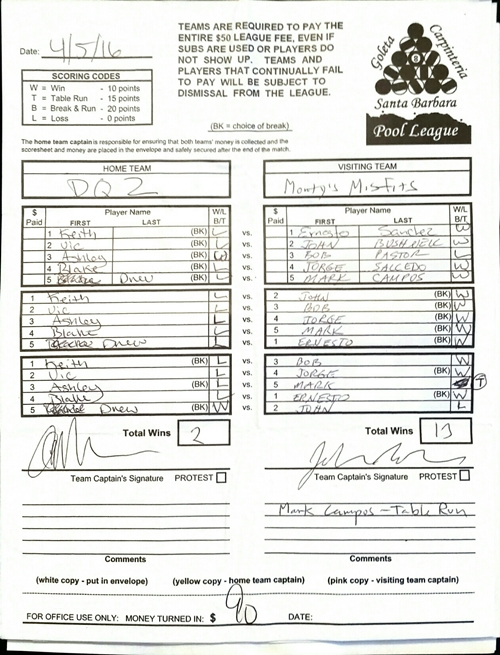 TEAMS ARE REQUIRED TO PAY THE
ENTIRE $50 LEAGUE FEE, EVEN IF
SUBS ARE USED OR PLAYERS DO
NOT SHOW UP. TEAMS AND
PLAYERS THAT CONTINUALLY FAIL
TO PAY WILL BE SUBJECT TO
DISMISSAL FROM THE LEAGUE.
Date: 4/5/16
SCORING CODES
W = Win - 10 points
T = Table Run - 15 points
B = Break & Run - 20 points
L = Loss - 0 points
Goleta Carpinteria
Santa Barbara
Pool League
(BK = choice of break)
The home team captain is responsible for ensuring that both teams' money is collected and the
scoresheet and money are placed in the envelope and safely secured after the end of the match.
HOME TEAM VISITING TEAM
DQ2 Monty's Misfits
$ Paid Player Name FIRST LAST W/L B/T $ Paid Player Name FIRST LAST W/L B/T
1 Keith (BK) L vs. 1 Ernesto Sanchez W
2 Vic L vs. 2 JOHN BUSHNELL W
3 Ashley (BK) W vs. 3 BOB PASTOR L
4 Blake L vs. 4 JORGE SALCEDO W
5 Drew (BK) L vs. 5 MARK CAMPOS W
1 Keith L vs. 2 JOHN (BK) W
2 Vic L vs. 3 BOB W
3 Ashley L vs. 4 JORGE (BK) W
4 Blake L vs. 5 MARK W
5 Drew L vs. 1 ERNESTO (BK) W
1 Keith (BK) L vs. 3 BOB W
2 Vic L vs. 4 JORGE (BK) W
3 Ashley L vs. 5 MARK T
4 Blake L vs. 1 ERNESTO (BK) W
5 Drew (BK) W vs. 2 JOHN L
Total Wins 2 Total Wins 13
Team Captain's Signature PROTEST Team Captain's Signature PROTEST
Mark Campos - Table Run
Comments Comments
(white copy - put in envelope) (yellow copy - home team captain) (pink copy - visiting team captain)
FOR OFFICE USE ONLY: MONEY TURNED IN: $ 90 DATE: